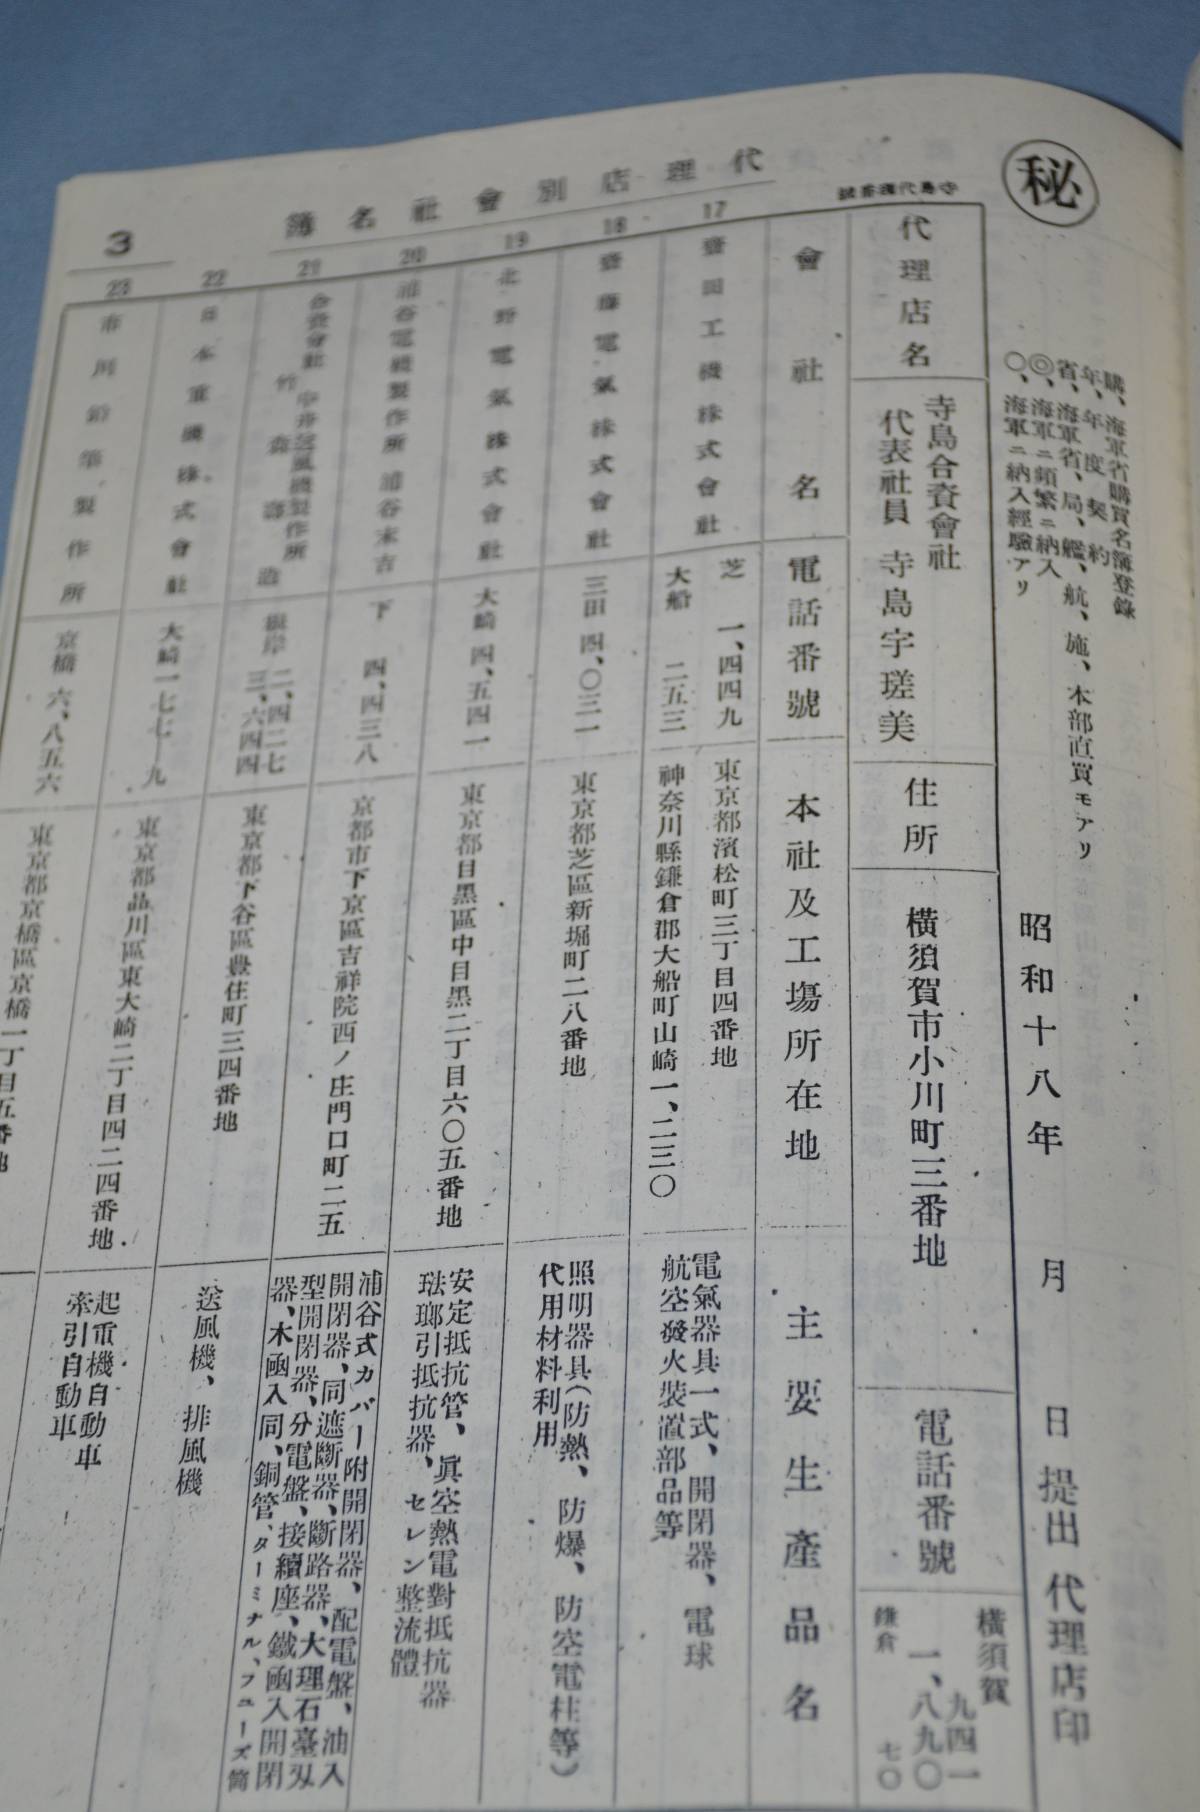 秘
購、海軍省購買名簿登錄
年、年度契約
省、海軍省、局、艦、航、施、本部直買モアリ
◎、海軍ニ頻繁ニ納入
○、海軍ニ納入經驗アリ
昭和十八年 月 日提出 代理店印
代理店名
寺島合資會社
代表社員 寺島宇瑳美
住所
橫須賀市小川町三番地
電話番號
橫須賀 九四一
一、八九〇
鎌倉 七〇
代理店別會社名簿
3
會社名
電話番號
本社及工場所在地
主要生產品名
17
田工機株式會社
芝 一、四四九
大船 二五三
東京都濱松町三丁目四番地
神奈川縣鎌倉郡大船町山崎一、二三〇
電氣器具一式、開閉器、電球
航空發火裝置部品等
18
電氣株式會社
三田 四、〇三一
東京都芝區新堀町二八番地
照明器具(防熱、防爆、防空電柱等)
代用材料利用
19
北野電氣株式會社
大崎 四、五四一
東京都目黑區中目黑二丁目六〇五番地
安定抵抗管、眞空熱電對抵抗器
琺瑯引抵抗器、セレン整流體
20
浦谷電機製作所 浦谷末吉
下 四、四三八
京都市下京區吉祥院西ノ庄門口町二五
浦谷式カバー附開閉器、配電盤、油入
開閉器、同遮斷器、斷路器、大理石臺双
型開閉器、分電盤、接續座、鐵凾入開閉
器、木凾入同、銅管、ターミナル、フューズ筒
21
合資會社 中井送風機製作所
根岸 二、四二七
三、六四四
東京都下谷區豊住町三四番地
送風機、排風機
22
日本重機株式會社
大崎一七七九
東京都品川區東大崎二丁目四二四番地
起重機自動車
牽引自動車
23
市川鉛筆製作所
京橋 六、八五六
東京都京橋區京橋一丁目五番地